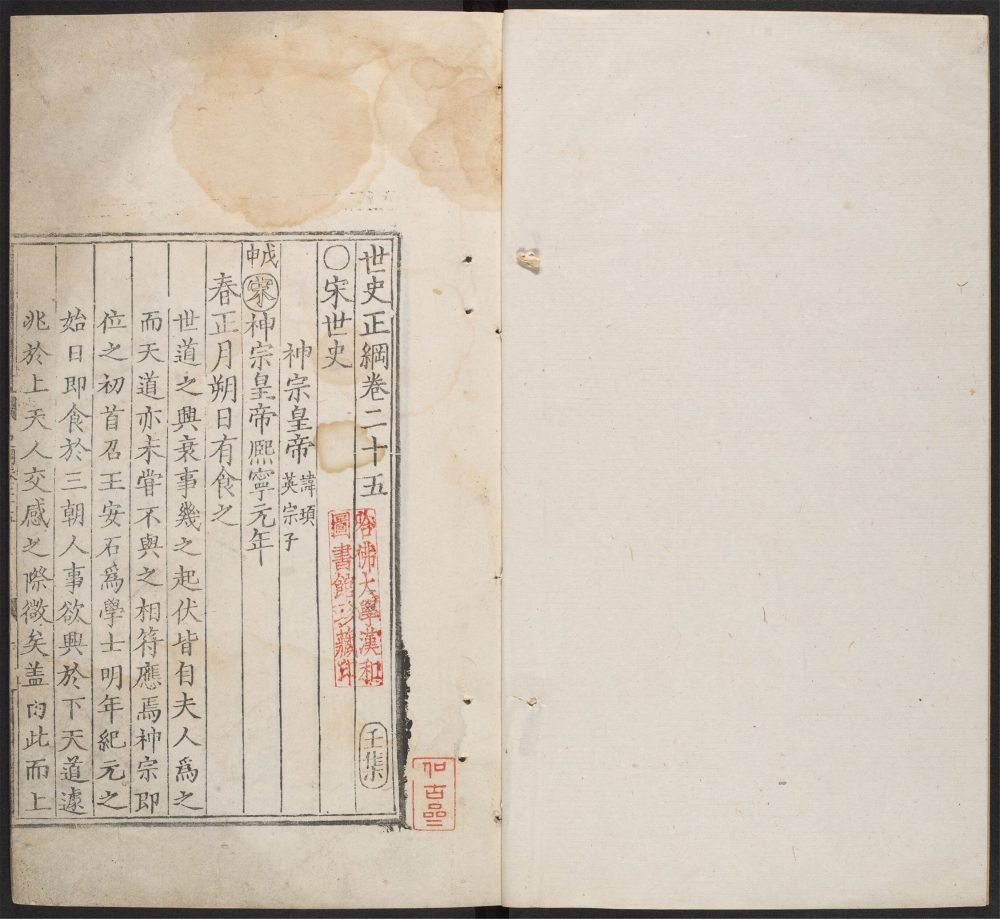 世史正綱卷二十五
壬集
○宋世史
神宗皇帝 諱頊 英宗子
戊申 宋 神宗皇帝熙寧元年
春正月朔日有食之
世道之興衰事幾之起伏皆自夫人為之
而天道亦未嘗不與之相符應焉神宗即
位之初首召王安石為學士明年紀元之
始日即食於三朝人事欲興於下天道遽
兆於上天人交感之際微矣盖由此而上
哈佛大學漢和
圖書館珍藏印